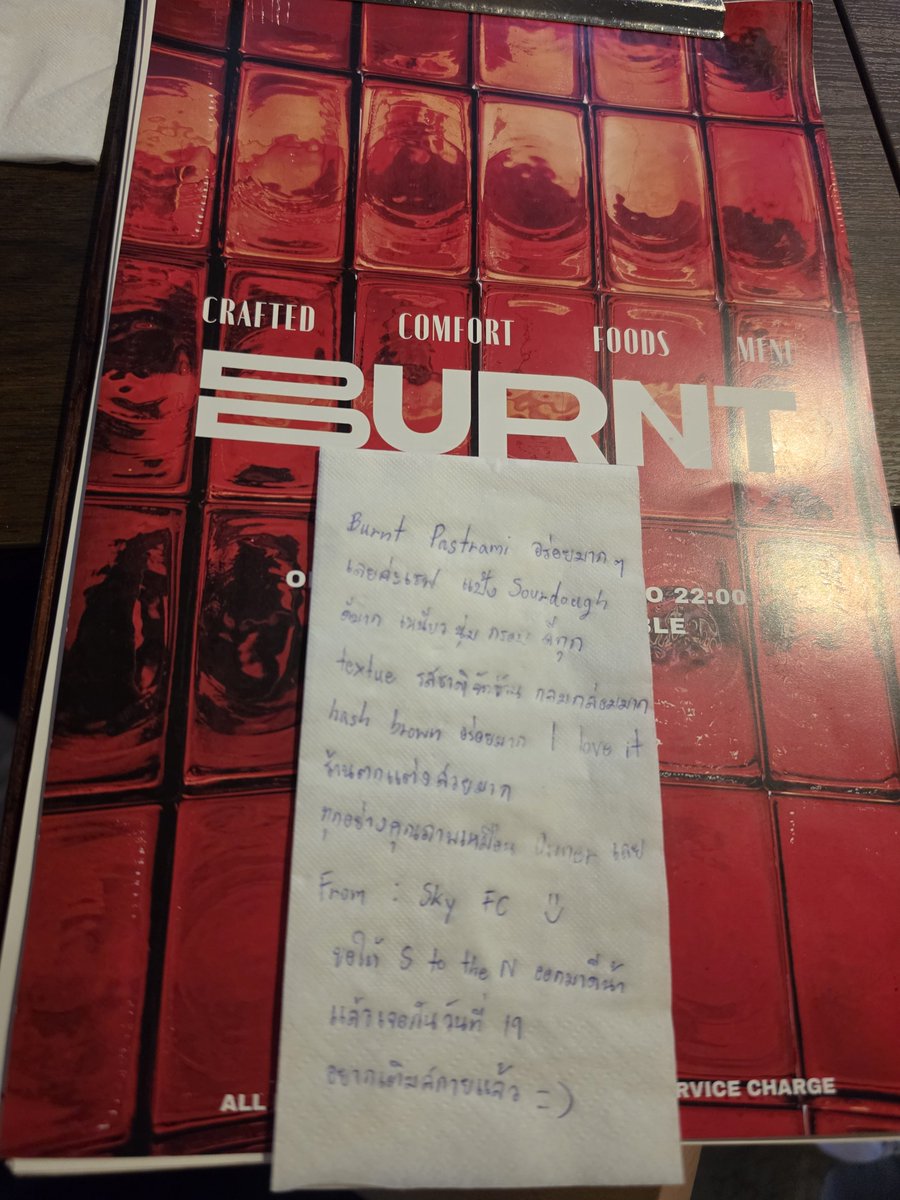 CRAFTED COMFORT FOODS MENU
BURNT
O 22:00
BLE
Burnt Pastrami อร่อยมากๆ
เลยค่ะเชฟ แป้ง Sourdough
ดีมาก เหนียว นุ่ม กรอบ มีทุก
textue รสชาติจัดจ้าน กลมกล่อมมาก
hash brown อร่อยมาก I love it
ร้านตกแต่งสวยมาก
ทุกอย่างคุณภาพเหมือน Owner เลย
From : Sky FC :)
ขอให้ S to the N ออกมาดีน้า
แล้วเจอกันวันที่ 19
อยากเติมสกายแล้ว =)
ALL RVICE CHARGE